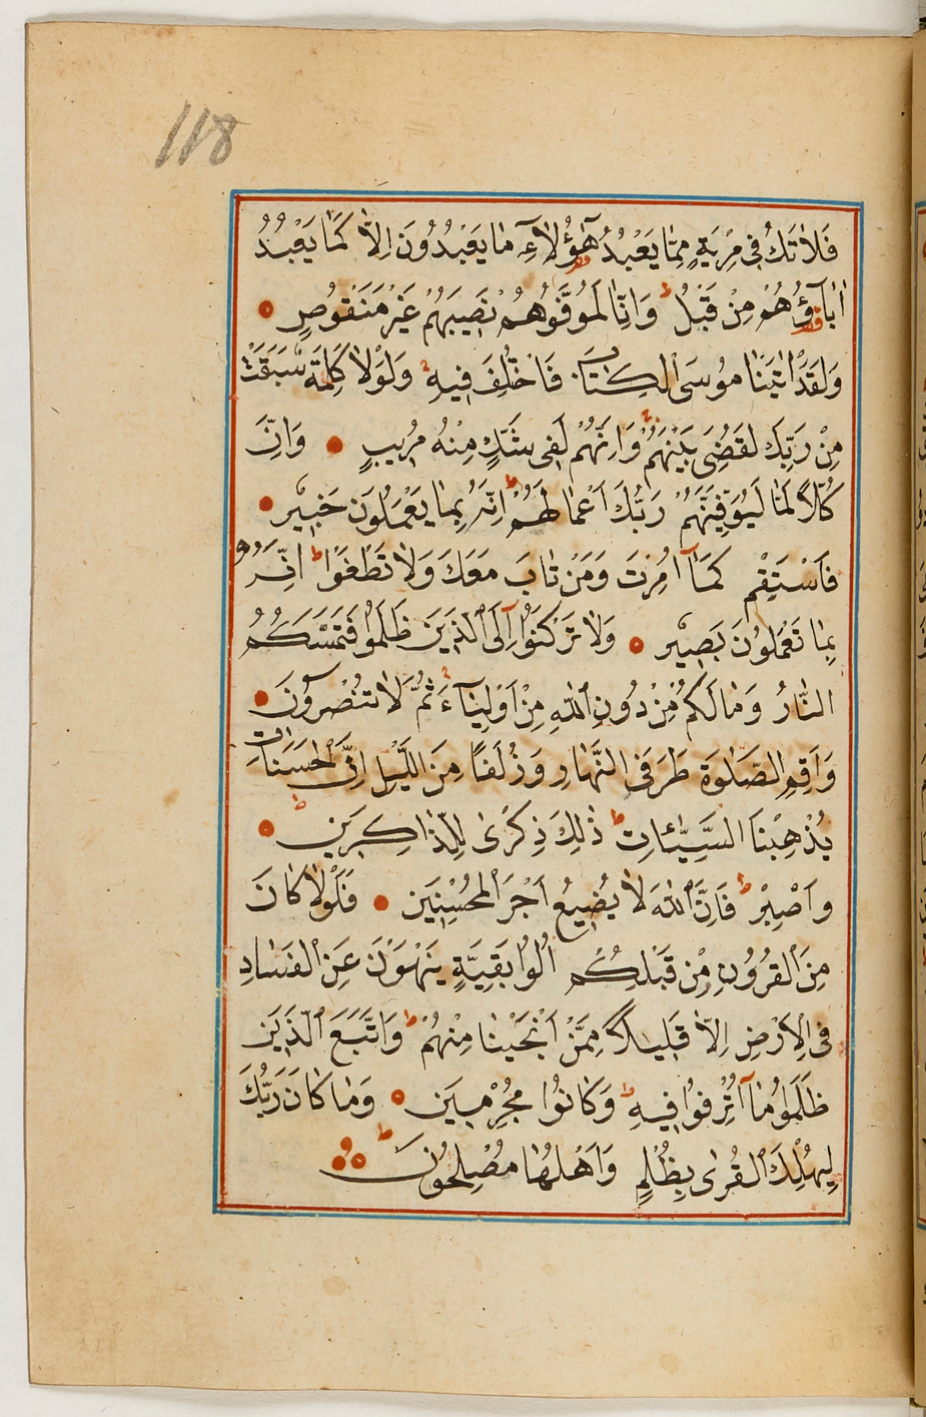 118
فَلَا تَكُ فِي مِرْيَةٍ مِمَّا يَعْبُدُ هٰٓؤُلَآءِ مَا يَعْبُدُونَ اِلَّا كَمَا يَعْبُدُ
اٰبَآؤُهُمْ مِنْ قَبْلُ ط وَاِنَّا لَمُوَفُّوهُمْ نَصِيبَهُمْ غَيْرَ مَنْقُوصٍ
وَلَقَدْ اٰتَيْنَا مُوسَى الْكِتَابَ فَاخْتُلِفَ فِيهِ ط وَلَوْلَا كَلِمَةٌ سَبَقَتْ
مِنْ رَبِّكَ لَقُضِيَ بَيْنَهُمْ ط وَاِنَّهُمْ لَفِي شَكٍّ مِنْهُ مُرِيبٍ وَاِنَّ
كُلًّا لَمَّا لَيُوَفِّيَنَّهُمْ رَبُّكَ اَعْمَالَهُمْ ط اِنَّهُ بِمَا يَعْمَلُونَ خَبِيرٌ
فَاسْتَقِمْ كَمَآ اُمِرْتَ وَمَنْ تَابَ مَعَكَ وَلَا تَطْغَوْا ط اِنَّهُ
بِمَا تَعْمَلُونَ بَصِيرٌ وَلَا تَرْكَنُوٓا اِلَى الَّذِينَ ظَلَمُوا فَتَمَسَّكُمُ
النَّارُ وَمَا لَكُمْ مِنْ دُونِ اللّٰهِ مِنْ اَوْلِيَآءَ ثُمَّ لَا تُنْصَرُونَ
وَاَقِمِ الصَّلٰوةَ طَرَفَيِ النَّهَارِ وَزُلَفًا مِنَ اللَّيْلِ اِنَّ الْحَسَنَاتِ
يُذْهِبْنَ السَّيِّئَاتِ ط ذٰلِكَ ذِكْرٰى لِلذَّاكِرِينَ ط
وَاصْبِرْ ط فَاِنَّ اللّٰهَ لَا يُضِيعُ اَجْرَ الْمُحْسِنِينَ فَلَوْلَا كَانَ
مِنَ الْقُرُونِ مِنْ قَبْلِكُمْ اُولُوا بَقِيَّةٍ يَنْهَوْنَ عَنِ الْفَسَادِ
فِي الْاَرْضِ اِلَّا قَلِيلًا مِمَّنْ اَنْجَيْنَا مِنْهُمْ ط وَاتَّبَعَ الَّذِينَ
ظَلَمُوا مَآ اُتْرِفُوا فِيهِ ط وَكَانُوا مُجْرِمِينَ وَمَا كَانَ رَبُّكَ
لِيُهْلِكَ الْقُرٰى بِظُلْمٍ وَاَهْلُهَا مُصْلِحُونَ ط